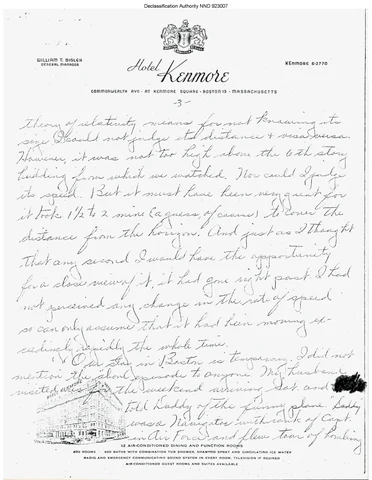 Declassification Authority NND 923007
WILLIAM T. BIGLER
GENERAL MANAGER
Hotel Kenmore
KENMORE 6-2770
COMMONWEALTH AVE · AT KENMORE SQUARE · BOSTON 15 · MASSACHUSETTS
-3-
theory of relativity means for not knowing its
size I could not judge its distance & visa versa.
However, it was not too high above the 6th story
building from which we watched. Nor could I judge
its speed. But it must have been very great for
it took 1 1/2 to 2 mins (a guess of course) to cover the
distance from the horizon. And just as I thought
that any second I would have the opportunity
for a close view of it, it had gone right past. I had
not perceived any change in the rate of speed
so can only assume that it had been moving ex-
ceedingly rapidly the whole time.
Our stay in Boston is temporary. I did not
mention the above episode to anyone. My husband
visited us the weekend arriving Sat. and
told Daddy of the funny plane". Daddy
was a Navigator with rank of Capt.
in Air Force and flew tour of bombing
HOTEL KENMORE
12 AIR-CONDITIONED DINING AND FUNCTION ROOMS
400 ROOMS 400 BATHS WITH COMBINATION TUB SHOWER, SHAMPOO SPRAY AND CIRCULATING ICE WATER
RADIO AND EMERGENCY COMMUNICATING SOUND SYSTEM IN EVERY ROOM. TELEVISION IF REQUIRED
AIR-CONDITIONED GUEST ROOMS AND SUITES AVAILABLE